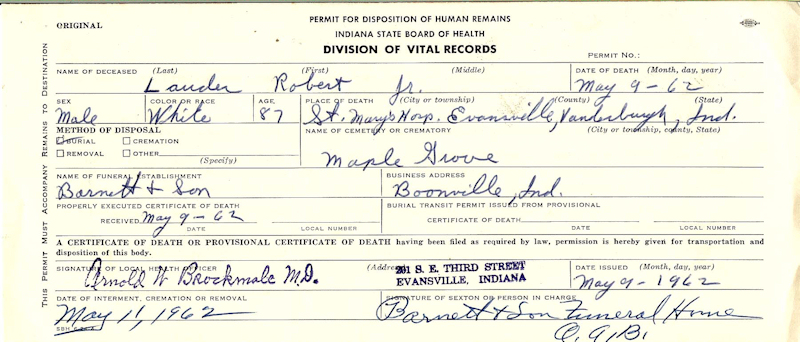 ORIGINAL
PERMIT FOR DISPOSITION OF HUMAN REMAINS
INDIANA STATE BOARD OF HEALTH
DIVISION OF VITAL RECORDS
PERMIT NO.:
THIS PERMIT MUST ACCOMPANY REMAINS TO DESTINATION
NAME OF DECEASED (Last) (First) (Middle) DATE OF DEATH (Month, day, year)
Lauder Robert Jr. May 9-62
SEX COLOR OR RACE AGE PLACE OF DEATH (City or township) (County) (State)
Male White 87 St. Mary's Hosp. Evansville, Vanderburgh, Ind.
METHOD OF DISPOSAL NAME OF CEMETERY OR CREMATORY (City or township, county, State)
BURIAL CREMATION
REMOVAL OTHER (Specify) Maple Grove
NAME OF FUNERAL ESTABLISHMENT BUSINESS ADDRESS
Barnett & Son Boonville, Ind.
PROPERLY EXECUTED CERTIFICATE OF DEATH BURIAL TRANSIT PERMIT ISSUED FROM PROVISIONAL
RECEIVED May 9-62 CERTIFICATE OF DEATH
DATE LOCAL NUMBER DATE LOCAL NUMBER
A CERTIFICATE OF DEATH OR PROVISIONAL CERTIFICATE OF DEATH having been filed as required by law, permission is hereby given for transportation and
disposition of this body.
SIGNATURE OF LOCAL HEALTH OFFICER (Address) 201 S. E. THIRD STREET DATE ISSUED (Month, day, year)
Arnold W Brockmole M.D. EVANSVILLE, INDIANA May 9-1962
DATE OF INTERMENT, CREMATION OR REMOVAL SIGNATURE OF SEXTON OR PERSON IN CHARGE
May 11, 1962 Barnett & Son Funeral Home
O.G.B.